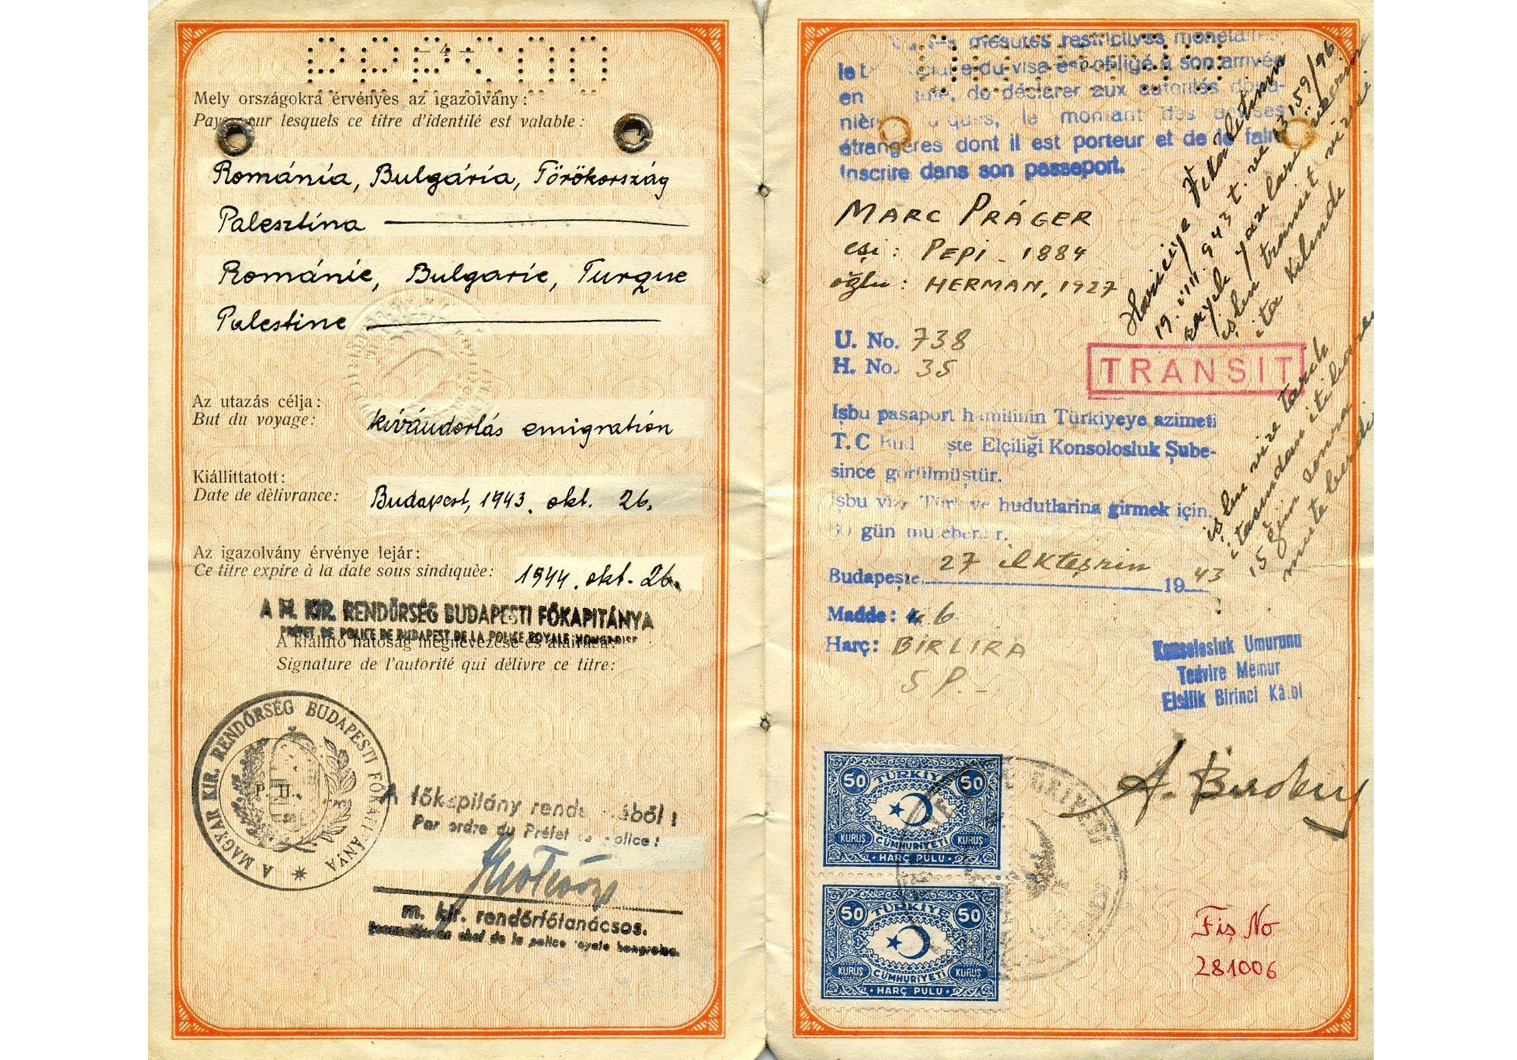 - 4 -
Mely országokra érvényes az igazolvány:
Pays pour lesquels ce titre d'identité est valable:
Románia, Bulgária, Törökország
Palesztina
Románie, Bulgarie, Turque
Palestine
Az utazás célja:
But du voyage:
kivándorlás emigration
Kiállittatott:
Date de délivrance:
Budapest, 1943. okt. 26.
Az igazolvány érvénye lejár:
Ce titre expire à la date sous sindiquèe:
1944. okt. 26.
A M. KIR. RENDŐRSÉG BUDAPESTI FŐKAPITÁNYA
PRÉFET DE POLICE DE BUDAPEST DE LA POLICE ROYALE HONGROISE
A kiállító hatóság megnevezése és aláírása:
Signature de l'autorité qui délivre ce titre:
A MAGYAR KIR. RENDŐRSÉG BUDAPESTI FŐKAPITÁNYA
P. H.
A főkapitány rendeletéből!
Par ordre du Préfet de police!
m. kir. rendőrfőtanácsos.
en chef de la police royale hongroise.
mesures restrictives monétaires
le du visa est obligé à son arrivée
en de déclarer aux autorités doua-
nières turques, le montant des devises
étrangères dont il est porteur et de le faire
inscrire dans son passeport.
MARC PRÁGER
eşi: PEPI - 1884
oğlu: HERMAN, 1927
U. No. 738
H. No. 35
TRANSIT
İşbu pasaport hamilinin Türkiyeye azimeti
T.C Budapeşte Elçiliği Konsolosluk Şube-
since görülmüştür.
İşbu vize Türkiye hudutlarina girmek için
gün muteberdir.
Budapeşte 27 ilkteşrin 1943
Madde: 6
Harç: BİRLİRA
5 P. -
Hariciye Vekâletinin
19. VIII 943 t. ve 13159/96
transit
işbu vize
15 gün sonra
Konsolosluk Umurunu
Tedvire Memur
Elçilik Birinci Kâtibi
50 TÜRKİYE 50
KURUŞ CUMHURİYETİ KURUŞ
HARÇ PULU
50 TÜRKİYE 50
KURUŞ CUMHURİYETİ KURUŞ
HARÇ PULU
Fiş No
281006